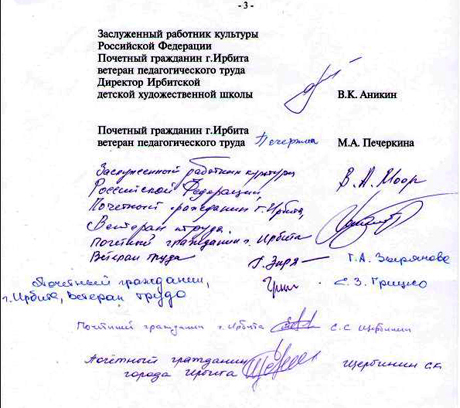 - 3 -
Заслуженный работник культуры
Российской Федерации
Почетный гражданин г.Ирбита
ветеран педагогического труда
Директор Ирбитской
детской художественной школы В.К. Аникин
Почетный гражданин г.Ирбита
ветеран педагогического труда Печеркина М.А. Печеркина
Заслуженный работник культуры В.А. Моор
Российской Федерации,
Почетный гражданин г. Ирбита,
Ветеран труда.
Почетный гражданин г. Ирбита
Ветеран труда Г. Зыря Г.А. Зырянова
Почетный гражданин,
г. Ирбита, Ветеран труда С.З. Грицко
Почетный гражданин г. Ирбита С.С.
Почётный гражданин
города Ирбита Щербинин С.С.